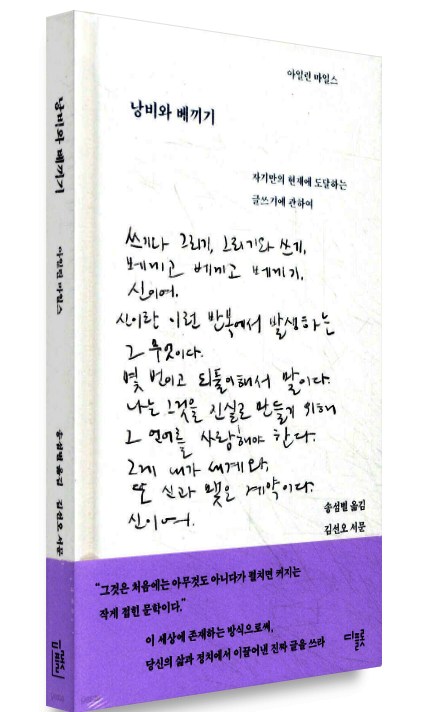 아일린 마일스
낭비와 베끼기
자기만의 현재에 도달하는
글쓰기에 관하여
쓰기나 그리기, 그리기와 쓰기,
베끼고 베끼고 베끼기,
신이여.
신이란 이런 반복에서 발생하는
그 무엇이다.
몇 번이고 되풀이해서 말이다.
나는 그것을 진실로 만들기 위해
그 언어를 사랑해야 한다.
그게 내가 세계와,
또 신과 맺은 계약이다.
신이여.
송섬별 옮김
김선오 서문
“그것은 처음에는 아무것도 아니다가 펼치면 커지는
작게 접힌 문학이다.”
이 세상에 존재하는 방식으로써,
당신의 삶과 정치에서 이끌어낸 진짜 글을 쓰라
디플롯
낭비와 베끼기
아일린 마일스
송섬별 옮김 김선오 서문